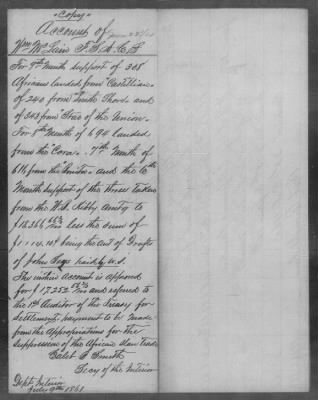 "Copy"
Account of
Wm McLain F.S.A.C.S
For 9th Month support of 308
Africans landed from "Castilian"
of 240 from "South Shore" and
of 303 from "Star of the Union".
For 8th Month of 694 landed
from the "Cora". 7th Month of
616 from the "Bonita" and the 6th
Month support of the three taken
from the W.R. Kibby am'tg to
less the sum of
being the amt of Drafts
of John paid by U.S.
The within account is approved
for $17,252 and referred to
the 1st Auditor of the Treasy for
settlement, payment to be made
from the Appropriations for the
suppression of the African slave trade
Caleb B Smith
Secy of the Interior
Dept Interior
July 9th 1861